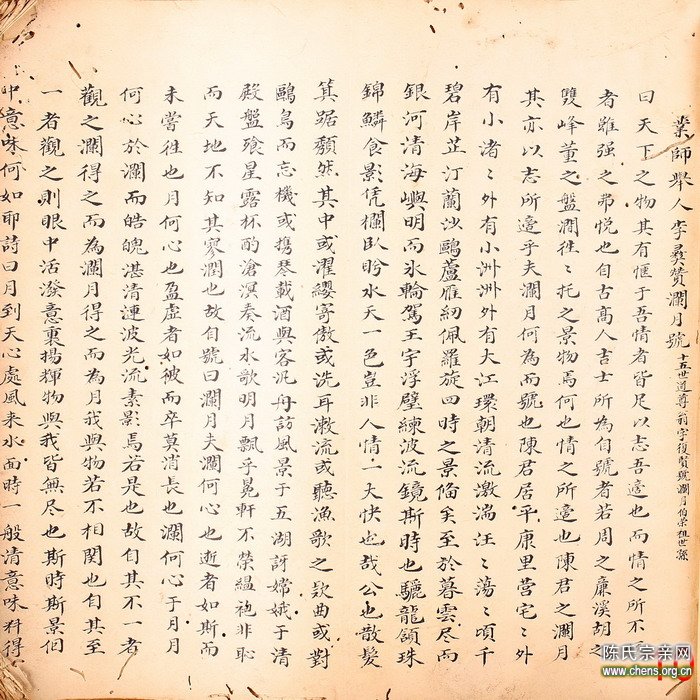 業師舉人李彝贊瀾月號 十五世道尊翁字復賓號瀾月伯榮祖世孫
曰天下之物其有愜于吾情者皆足以志吾邉也而情之所不
者雖强之弗悅也自古高人吉士所為自號者若周之廉溪胡之
雙峰董之盤澗徃〻托之景物焉何也情之所邉也陳君之瀾月
其亦以志所邉乎夫瀾月何為而號也陳君居平康里营宅〻外
有小渚〻外有小洲洲外有大江環朝清流激湍汪〻蕩〻項千
碧岸芷汀蘭沙鷗蘆雁紉佩羅旋四時之景俻矣至於暮雲尽而
銀河清海嶼明而氷輪駕玉宇浮璧練波流鏡斯時也驪龍頷珠
錦鱗食影凭欄臥盻水天一色豈非人情一大快也哉公也散髮
箕踞頹然其中或濯纓寄傲或洗耳漱流或聽漁歌之欵曲或對
鷗鳥而忘機或携琴載酒與客汎舟訪風景于五湖訝嫦娥于清
殿盤飱星露杯酌滄溟奏流水歌明月飄乎晃軒不榮緼袍非恥
而天地不知其寥濶也故自號曰瀾月夫瀾何心也逝者如斯而
未嘗徃也月何心也盈虛者如彼而卒莫消長也瀾何心于月月
何心於瀾而皓魄湛清連波光流素影焉若是也故自其不一者
觀之瀾得之而為瀾月得之而為月我與物若不相関也自其至
一者觀之則眼中活潑意裏揚輝物與我皆無尽也斯時斯景個
中意味何如耶詩曰月到天心處風来水面時一般清意味料得
陈氏宗亲网
www.chens.org.cn